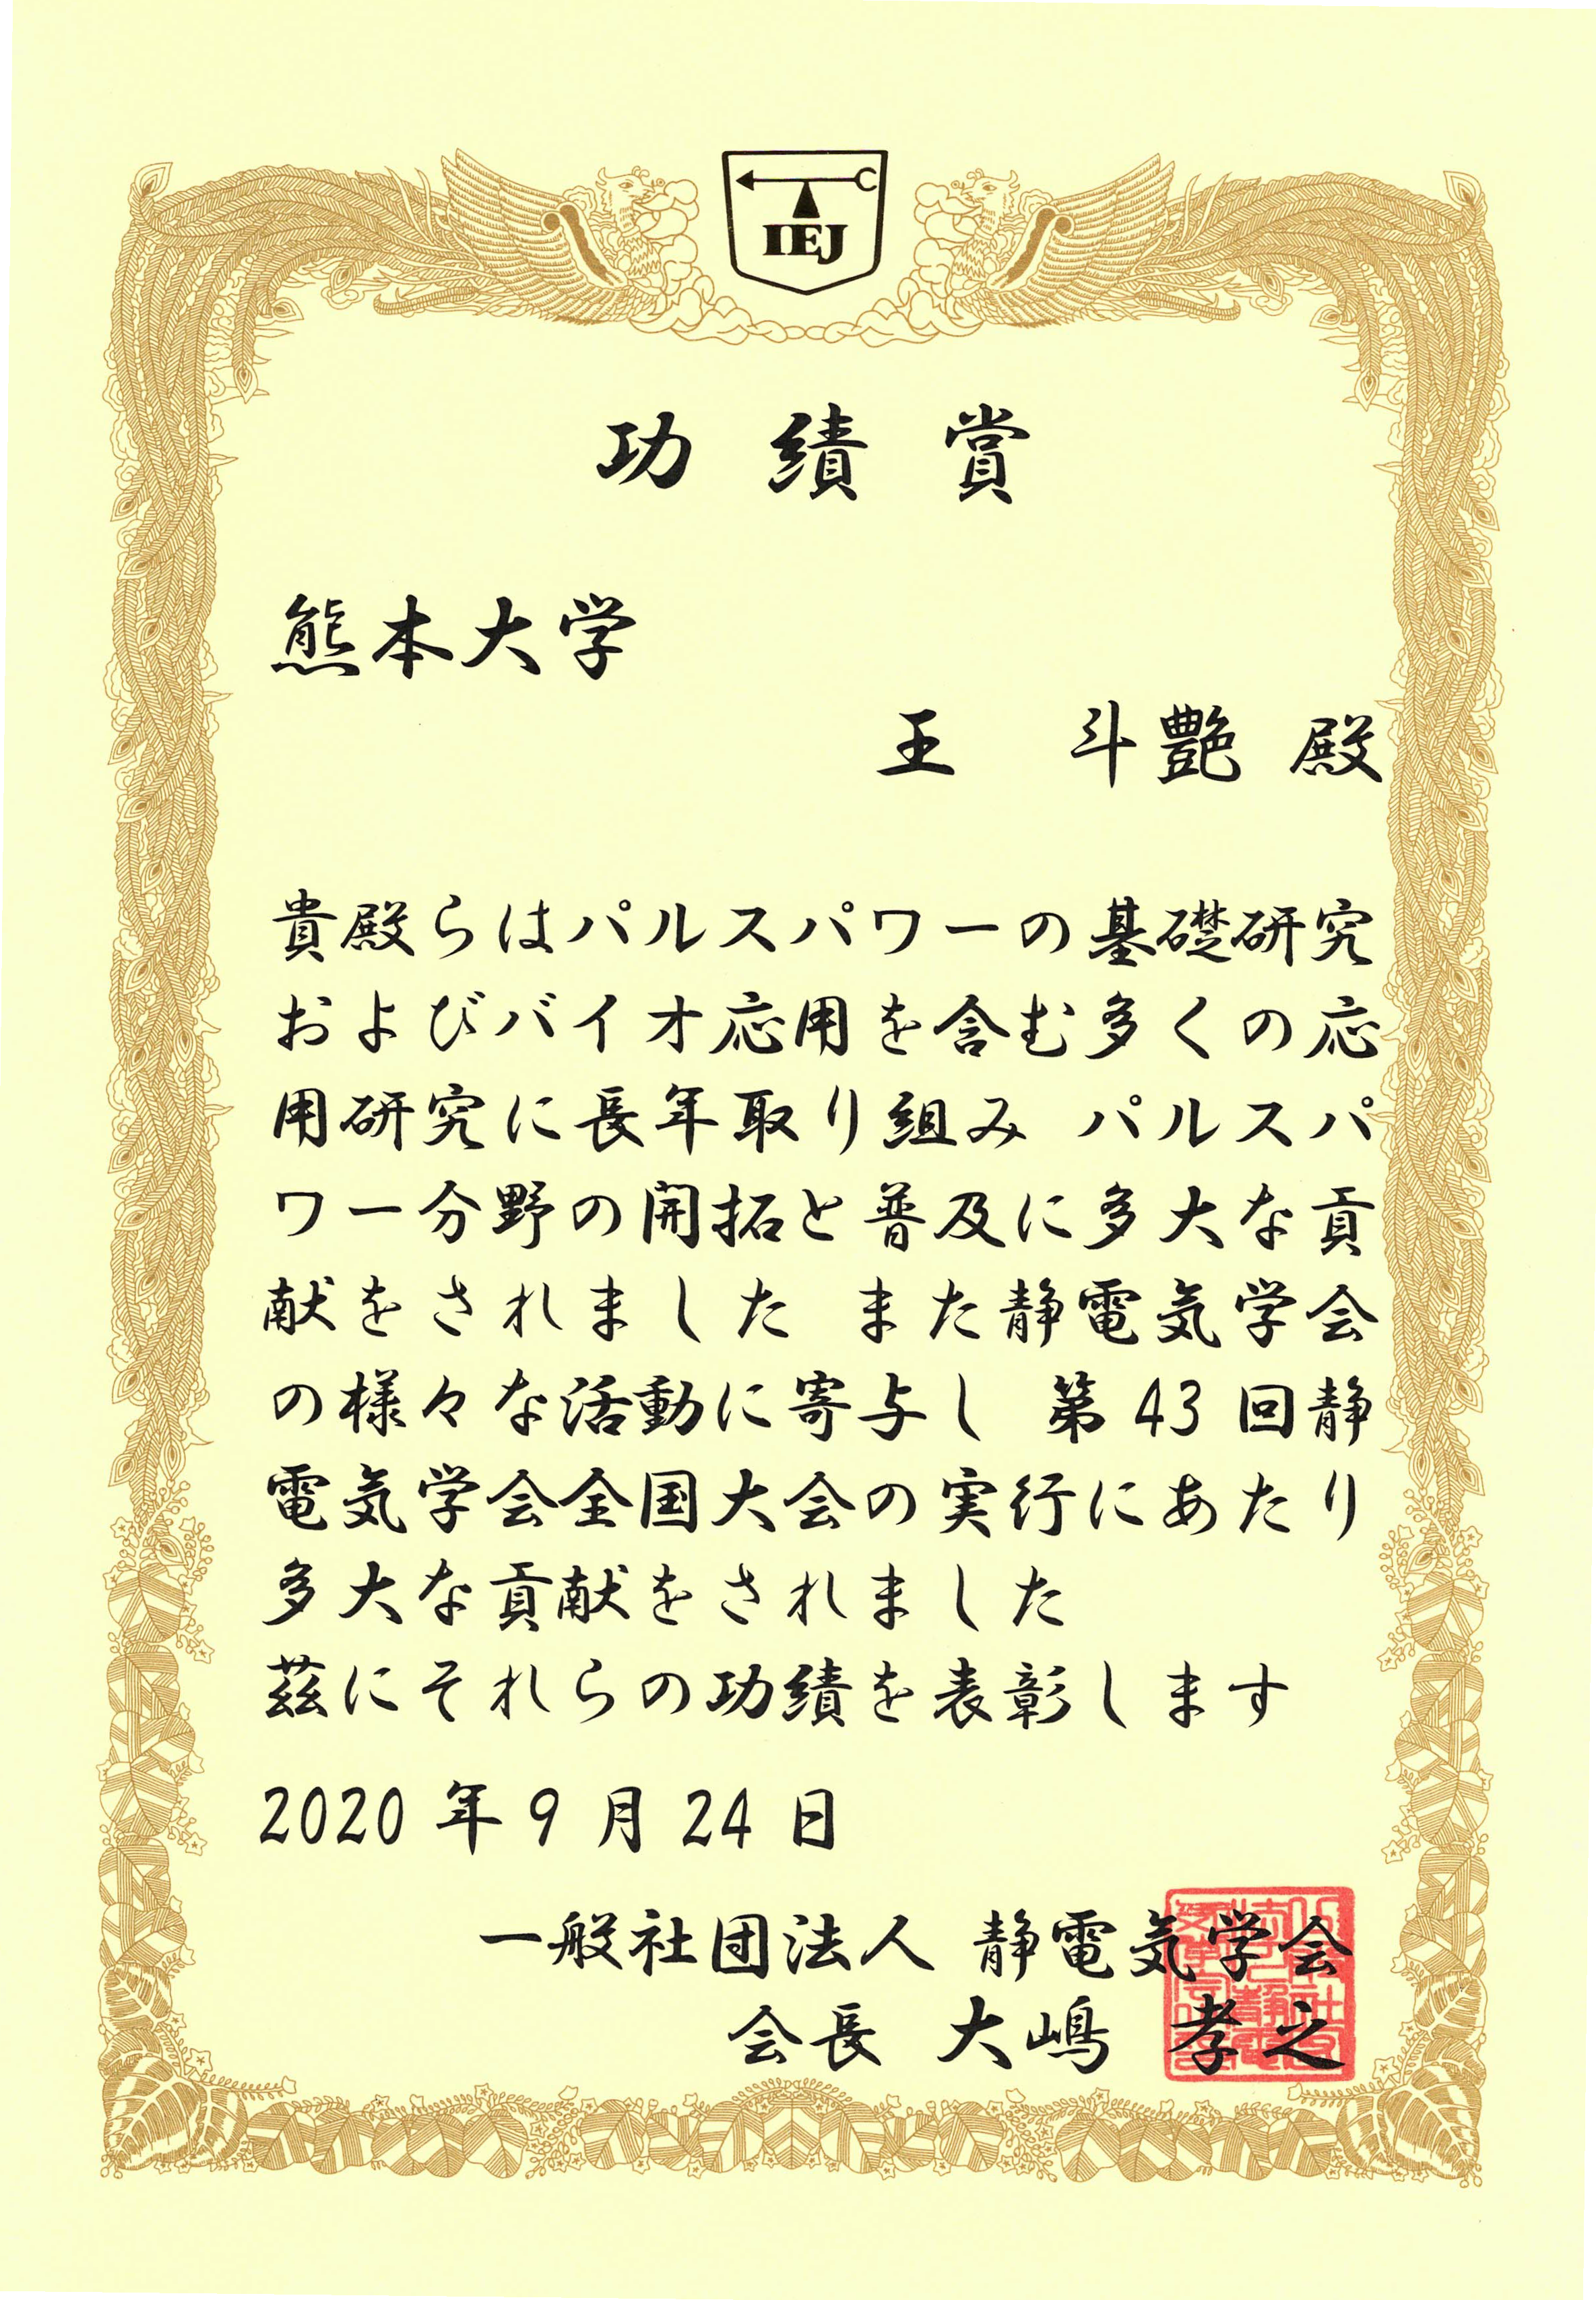 IEJ
功績賞
熊本大学
王　斗艶 殿
貴殿らはパルスパワーの基礎研究
およびバイオ応用を含む多くの応
用研究に長年取り組み パルスパ
ワー分野の開拓と普及に多大な貢
献をされました また静電気学会
の様々な活動に寄与し 第43回静
電気学会全国大会の実行にあたり
多大な貢献をされました
茲にそれらの功績を表彰します
2020年9月24日
一般社団法人 静電気学会
会長 大嶋 孝之